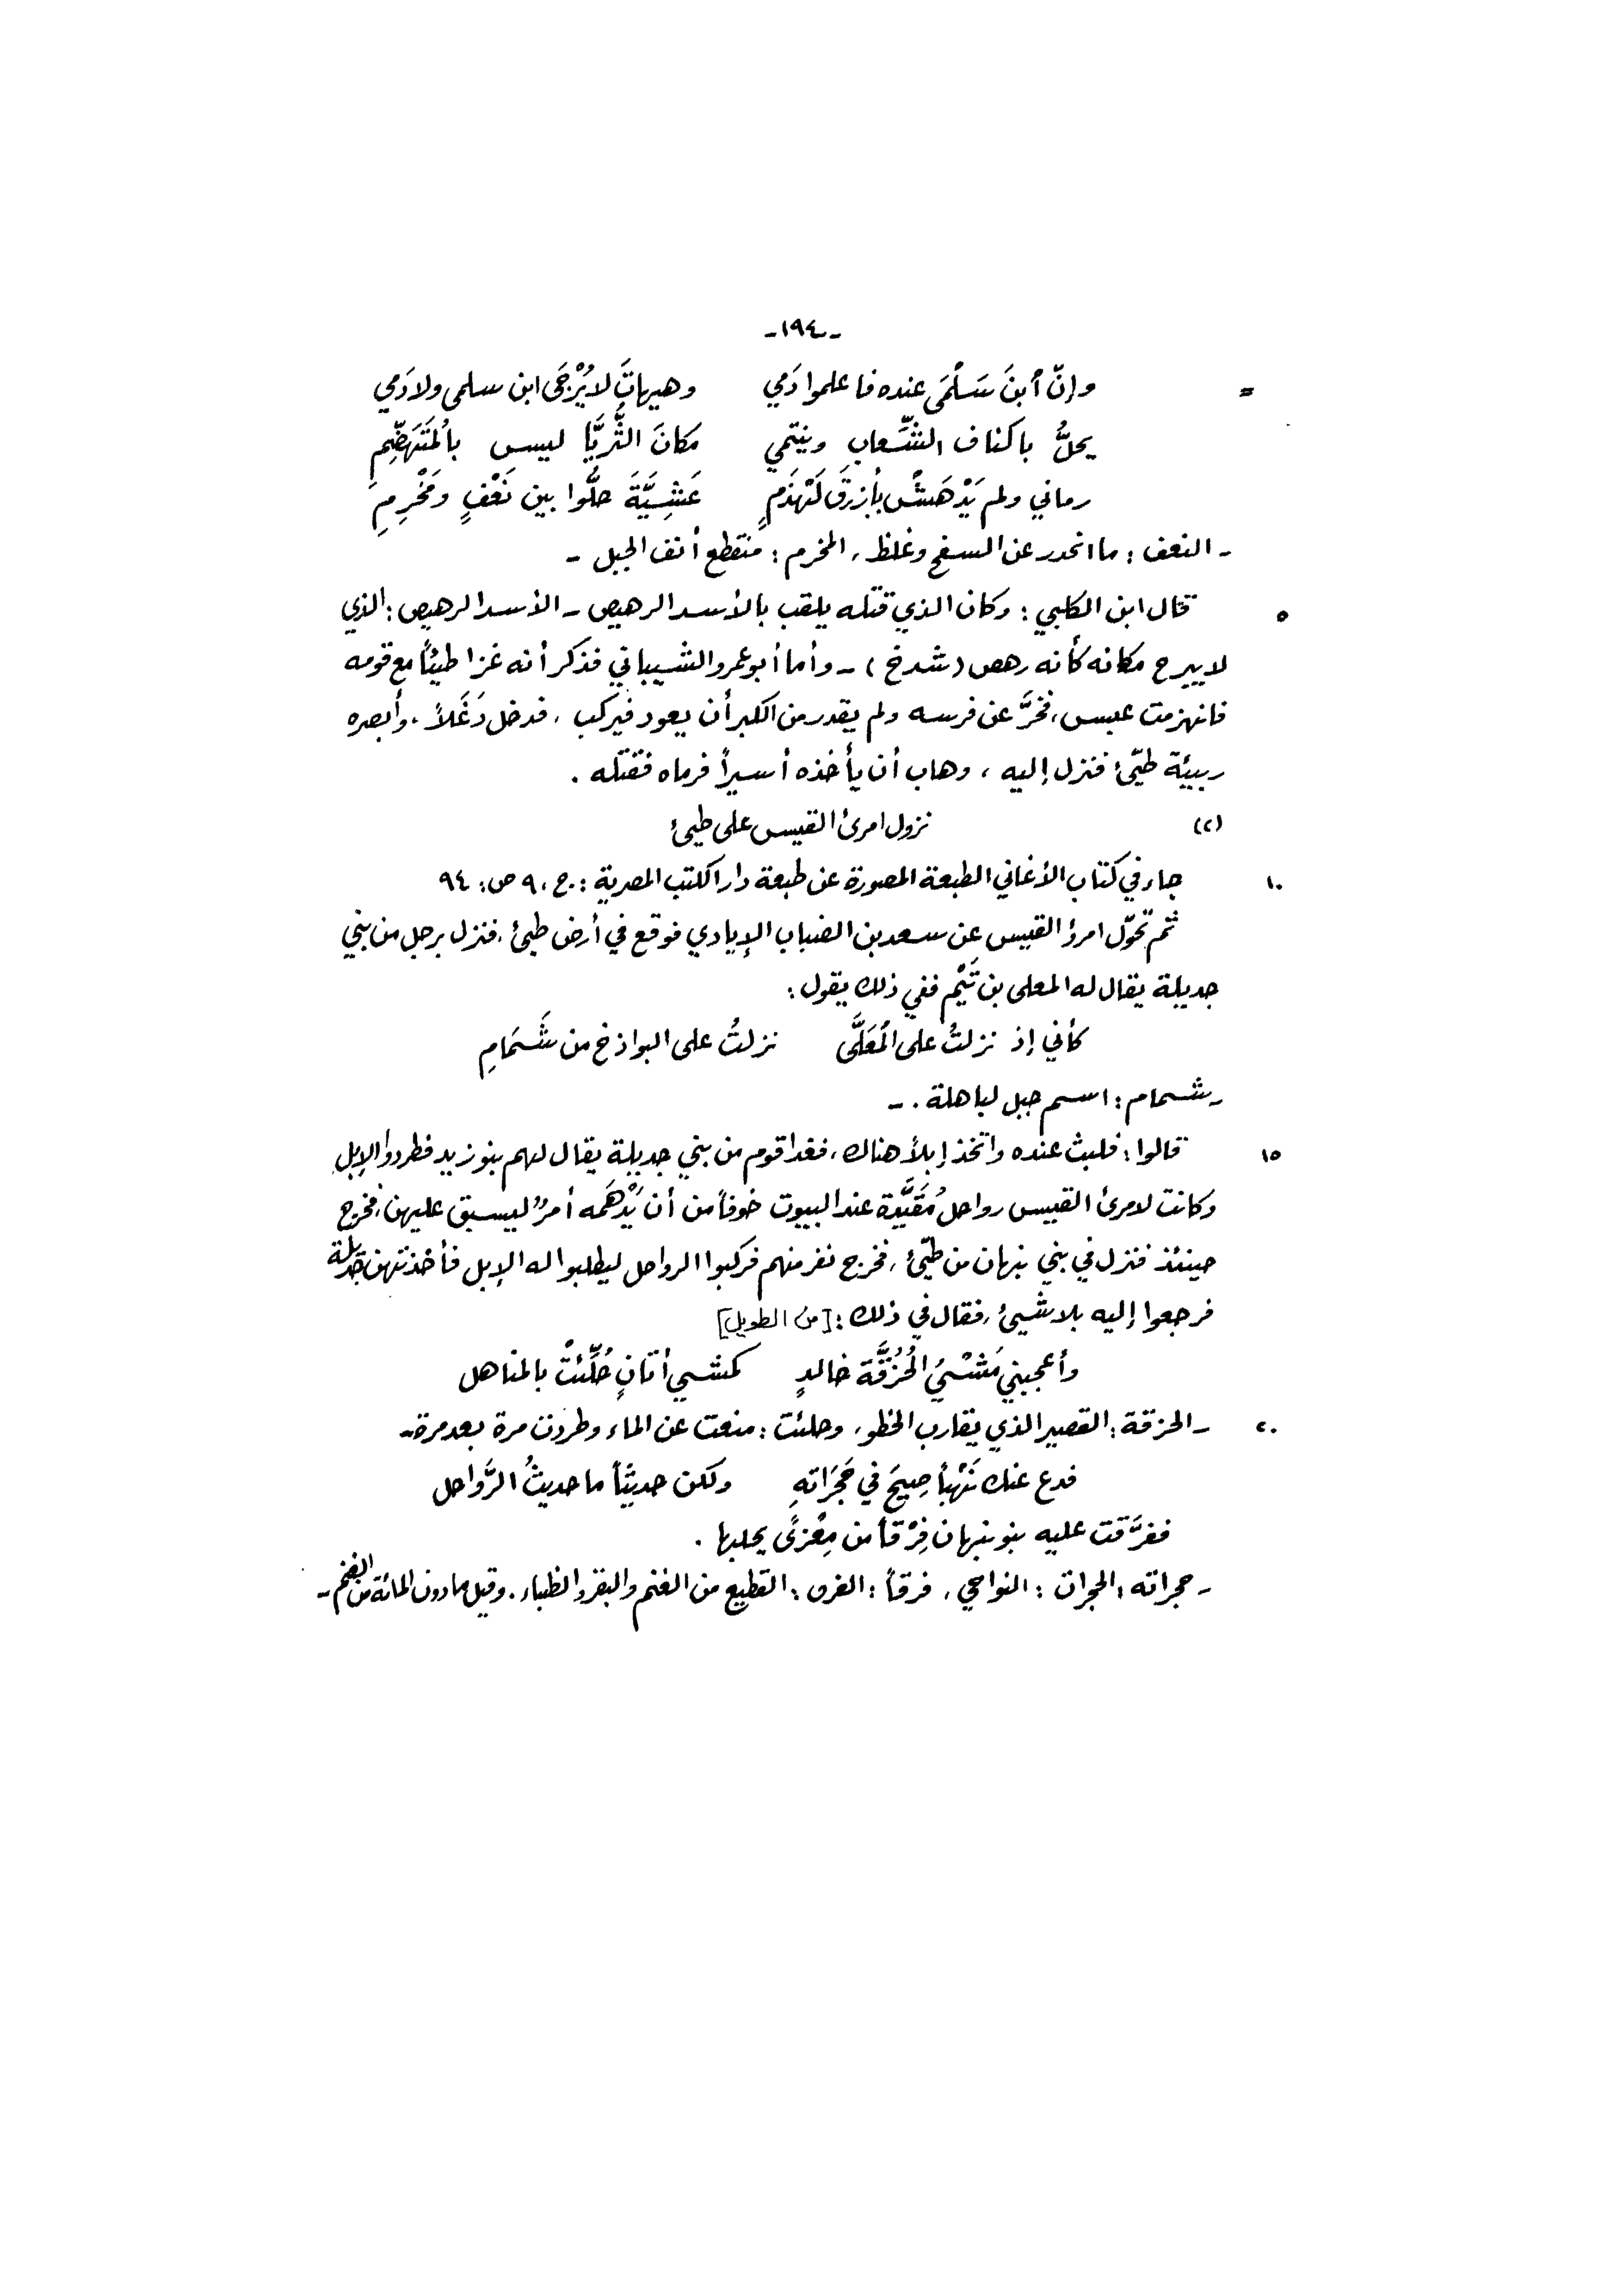 -١٩٤-
= وإنّ ٱبنَ سَلْمَى عنده فاعلموا دَمي وهيهاتَ لا يُرْجَى ابن سلمى ولا دَمي
يحلُّ بأكناف الشِّعاب وينتمي مكانَ الثُّريَّا ليس بالمُتَهَضِّمِ
رماني ولم يَدْهَشْ بأزرقَ لَهْذَمٍ عَشِيَّةَ حلُّوا بين نَعْفٍ ومَخْرِمِ
- النعف : ما انحدر عن السفح وغلظ ، المخرم : منقطع أنف الجبل -
٥ قال ابن الكلبي : وكان الذي قتله يلقب بالأسد الرهيص - الأسد الرهيص : الذي
لا يبرح مكانه كأنه رهص (شدخ) - وأما أبو عمرو الشيباني فذكر أنه غزا طيئاً مع قومه
فانهزمت عبس ، فخرَّ عن فرسه ولم يقدر من الكبر أن يعود فيركب ، فدخل دَغَلاً ، وأبصره
ربيئة طيّئ فنزل إليه ، وهاب أن يأخذه أسيراً فرماه فقتله .
(٢) نزول امرئ القيس على طيئ
١٠ جاء في كتاب الأغاني الطبعة المصورة عن طبعة دار الكتب المصرية : ج ، ٩ ص: ٩٤
ثم تحوّل امرؤ القيس عن سعد بن الضباب الإيادي فوقع في أرض طيئ ، فنزل برجل من بني
جديلة يقال له المعلى بن تَيْم ففي ذلك يقول :
كأني إذ نزلتُ على المُعَلَّى نزلتُ على البواذخ من شَمَامِ
- شمام : اسم جبل لباهلة . -
١٥ قالوا : فلبث عنده واتخذ إبلاً هناك ، فغدا قوم من بني جديلة يقال لهم بنو زيد فطردوا الإبل
وكانت لامرئ القيس رواحل مُقَيَّدة عند البيوت خوفاً من أن يَدْهَمه أمرٌ ليسبق عليهن ، فخرج
حينئذ فنزل في بني نبهان من طيّئ ، فخرج نفر منهم فركبوا الرواحل ليطلبوا له الإبل فأخذتهن جديلة
فرجعوا إليه بلا شيئ ، فقال في ذلك : [من الطويل]
وأعجبني مَشْيُ الحُزُقَّة خالدٍ كمشي أتانٍ حُلِّئتْ بالمناهل
٢٠ - الحزقة : القصير الذي يقارب الخطو ، وحلئت : منعت عن الماء وطردت مرة بعد مرة -
فدع عنك نَهْباً صِيحَ في حَجَرَاتهِ ولكن حديثاً ما حديثُ الرَّواحل
ففرَّقت عليه بنو نبهان فِرْقاً من مِعْزىً يحلبها .
- حجراته : الحجرات : النواحي ، فرقاً : الفرق : القطيع من الغنم والبقر والظباء . وقيل ما دون المائة من الغنم -